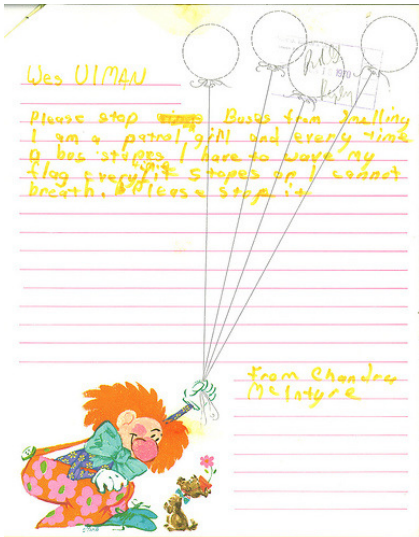 Wes UlMAN
Please stop Buses from Smelling
I am a patrol girl and every time
a bus stopes I have to wave my
flag every it stopes or I cannot
breath. Please stop it
From Chandra
McIntyre